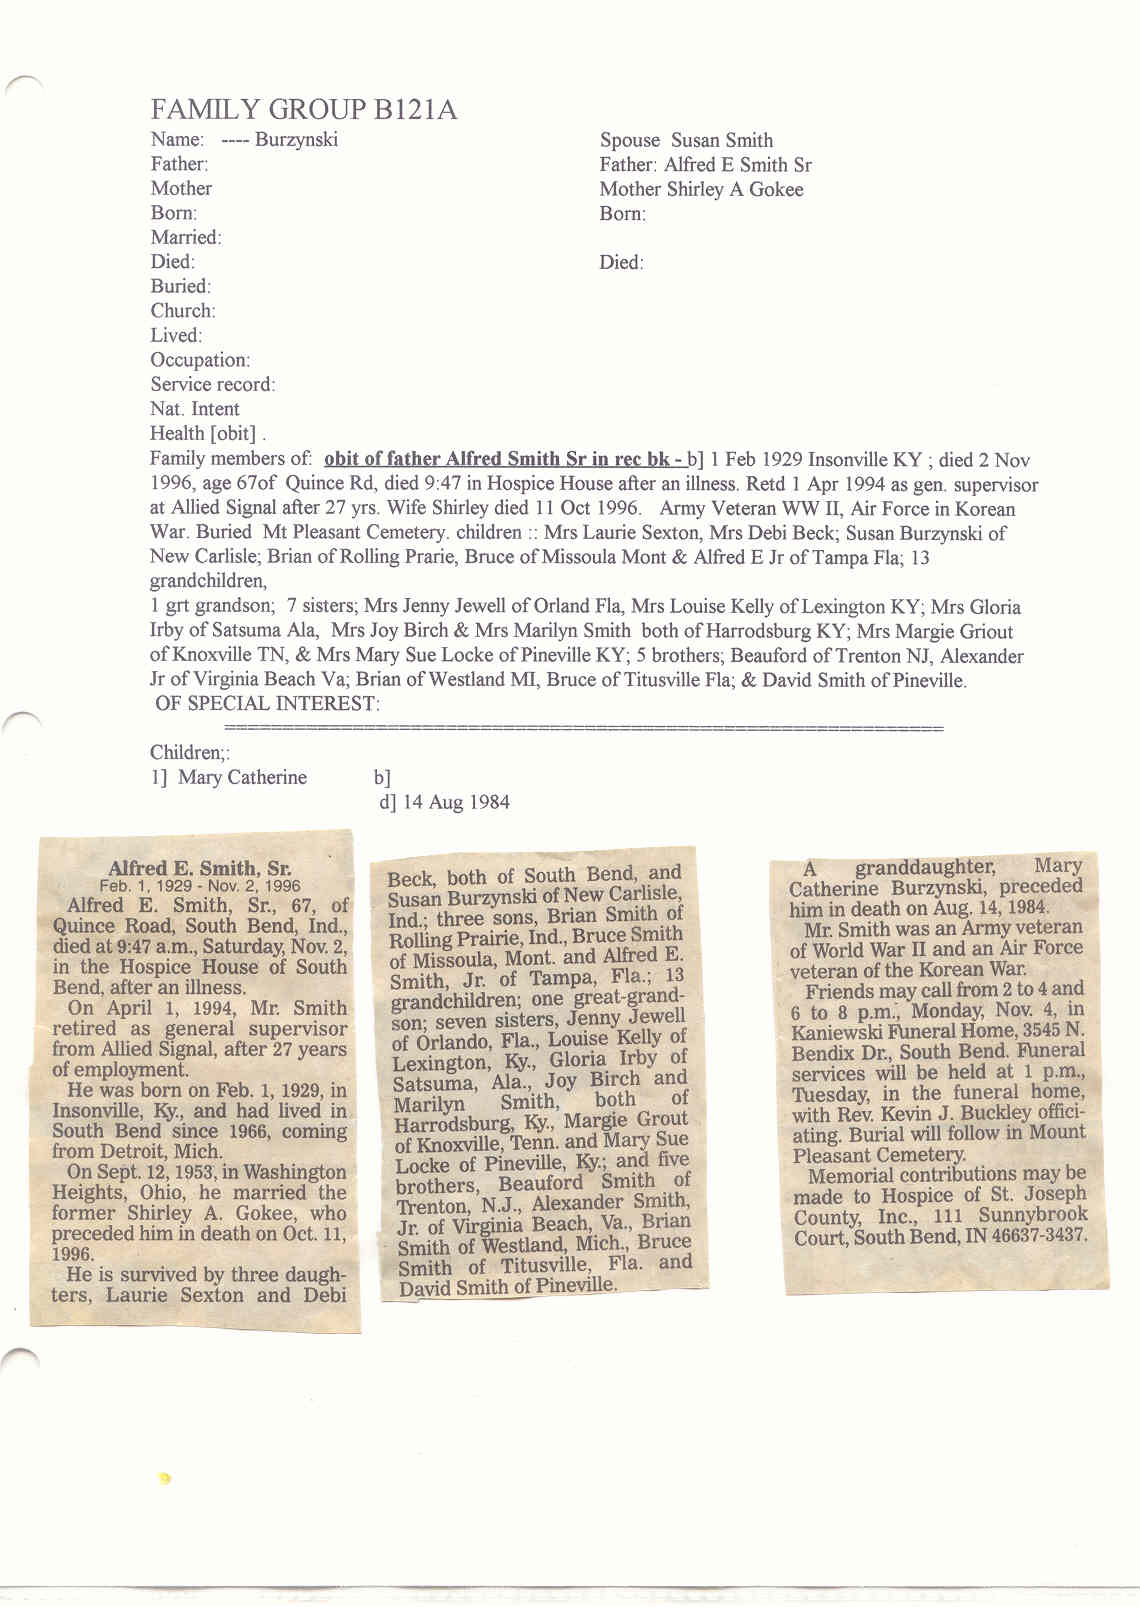 FAMILY GROUP B121A
Name: ---- Burzynski
Spouse Susan Smith
Father:
Father: Alfred E Smith Sr
Mother
Mother Shirley A Gokee
Born:
Born:
Married:
Died:
Died:
Buried:
Church:
Lived:
Occupation:
Service record:
Nat. Intent
Health [obit] .
Family members of: obit of father Alfred Smith Sr in rec bk - b] 1 Feb 1929 Insonville KY ; died 2 Nov
1996, age 67of Quince Rd, died 9:47 in Hospice House after an illness. Retd 1 Apr 1994 as gen. supervisor
at Allied Signal after 27 yrs. Wife Shirley died 11 Oct 1996. Army Veteran WW II, Air Force in Korean
War. Buried Mt Pleasant Cemetery. children :: Mrs Laurie Sexton, Mrs Debi Beck; Susan Burzynski of
New Carlisle; Brian of Rolling Prarie, Bruce of Missoula Mont & Alfred E Jr of Tampa Fla; 13
grandchildren,
1 grt grandson; 7 sisters; Mrs Jenny Jewell of Orland Fla, Mrs Louise Kelly of Lexington KY; Mrs Gloria
Irby of Satsuma Ala, Mrs Joy Birch & Mrs Marilyn Smith both of Harrodsburg KY; Mrs Margie Griout
of Knoxville TN, & Mrs Mary Sue Locke of Pineville KY; 5 brothers; Beauford of Trenton NJ, Alexander
Jr of Virginia Beach Va; Brian of Westland MI, Bruce of Titusville Fla; & David Smith of Pineville.
OF SPECIAL INTEREST:
Children;:
1] Mary Catherine b]
d] 14 Aug 1984
Alfred E. Smith, Sr.
Feb. 1, 1929 - Nov. 2, 1996
Alfred E. Smith, Sr., 67, of
Quince Road, South Bend, Ind.,
died at 9:47 a.m., Saturday, Nov. 2,
in the Hospice House of South
Bend, after an illness.
On April 1, 1994, Mr. Smith
retired as general supervisor
from Allied Signal, after 27 years
of employment.
He was born on Feb. 1, 1929, in
Insonville, Ky., and had lived in
South Bend since 1966, coming
from Detroit, Mich.
On Sept. 12, 1953, in Washington
Heights, Ohio, he married the
former Shirley A. Gokee, who
preceded him in death on Oct. 11,
1996.
He is survived by three daugh-
ters, Laurie Sexton and Debi
Beck, both of South Bend, and
Susan Burzynski of New Carlisle,
Ind.; three sons, Brian Smith of
Rolling Prairie, Ind., Bruce Smith
of Missoula, Mont. and Alfred E.
Smith, Jr. of Tampa, Fla.; 13
grandchildren; one great-grand-
son; seven sisters, Jenny Jewell
of Orlando, Fla., Louise Kelly of
Lexington, Ky., Gloria Irby of
Satsuma, Ala., Joy Birch and
Marilyn Smith, both of
Harrodsburg, Ky., Margie Grout
of Knoxville, Tenn. and Mary Sue
Locke of Pineville, Ky.; and five
brothers, Beauford Smith of
Trenton, N.J., Alexander Smith,
Jr. of Virginia Beach, Va., Brian
Smith of Westland, Mich., Bruce
Smith of Titusville, Fla. and
David Smith of Pineville.
A granddaughter, Mary
Catherine Burzynski, preceded
him in death on Aug. 14, 1984.
Mr. Smith was an Army veteran
of World War II and an Air Force
veteran of the Korean War.
Friends may call from 2 to 4 and
6 to 8 p.m., Monday, Nov. 4, in
Kaniewski Funeral Home, 3545 N.
Bendix Dr., South Bend. Funeral
services will be held at 1 p.m.,
Tuesday, in the funeral home,
with Rev. Kevin J. Buckley offici-
ating. Burial will follow in Mount
Pleasant Cemetery.
Memorial contributions may be
made to Hospice of St. Joseph
County, Inc., 111 Sunnybrook
Court, South Bend, IN 46637-3437.